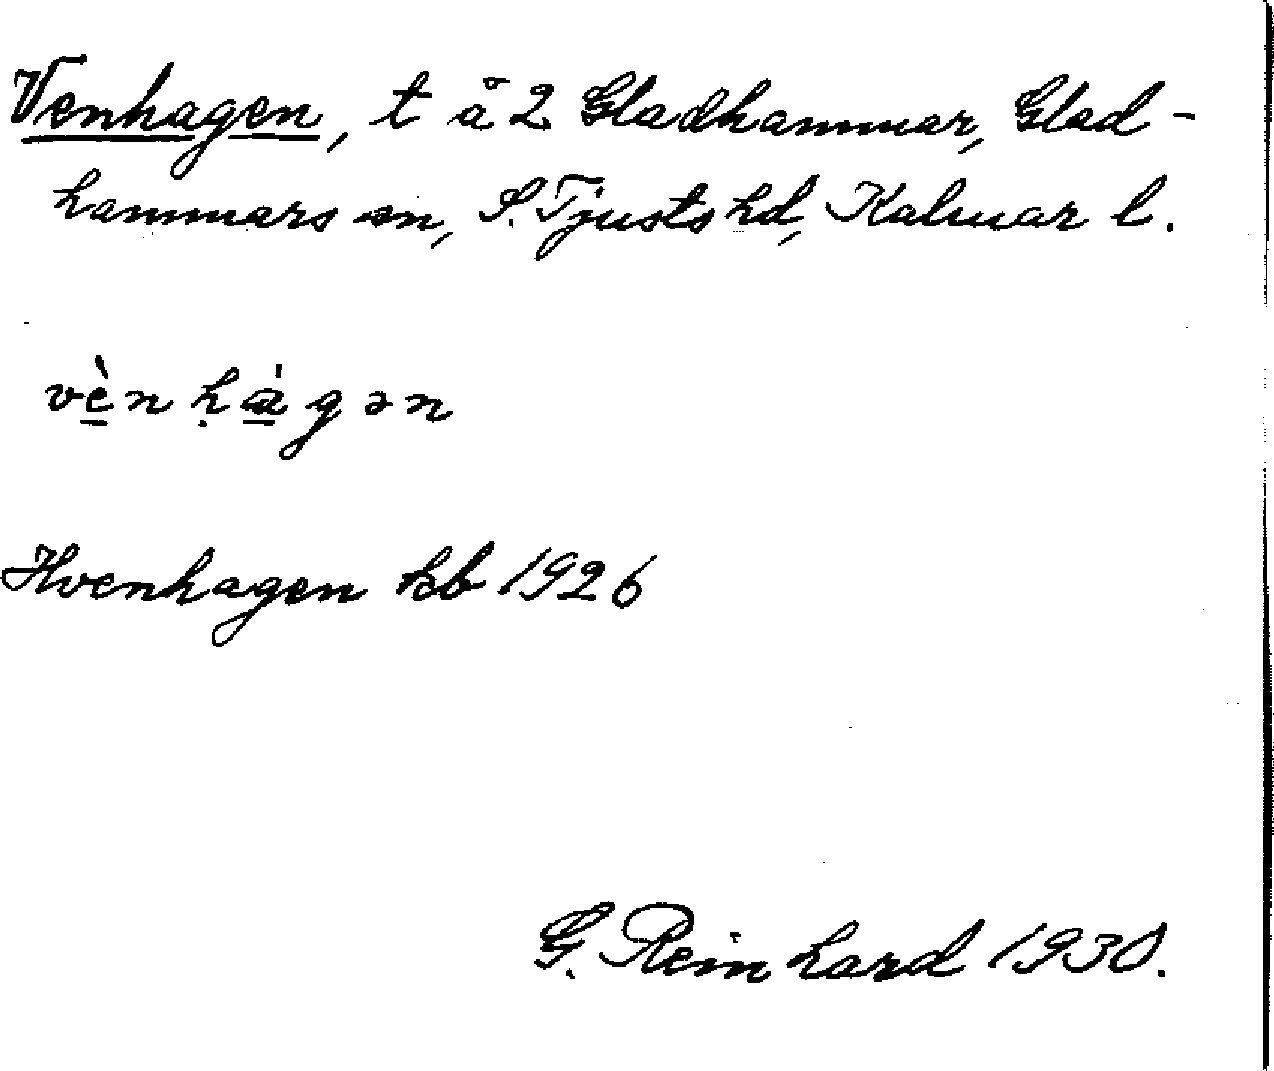 Venhagen, t å 2 Gladhammar, Glad-
hammars sn, S. Tjusts hd, Kalmar l.
vè̲n ḥà̲gən
Hvenhagen kb 1926
G. Reinhard 1930.